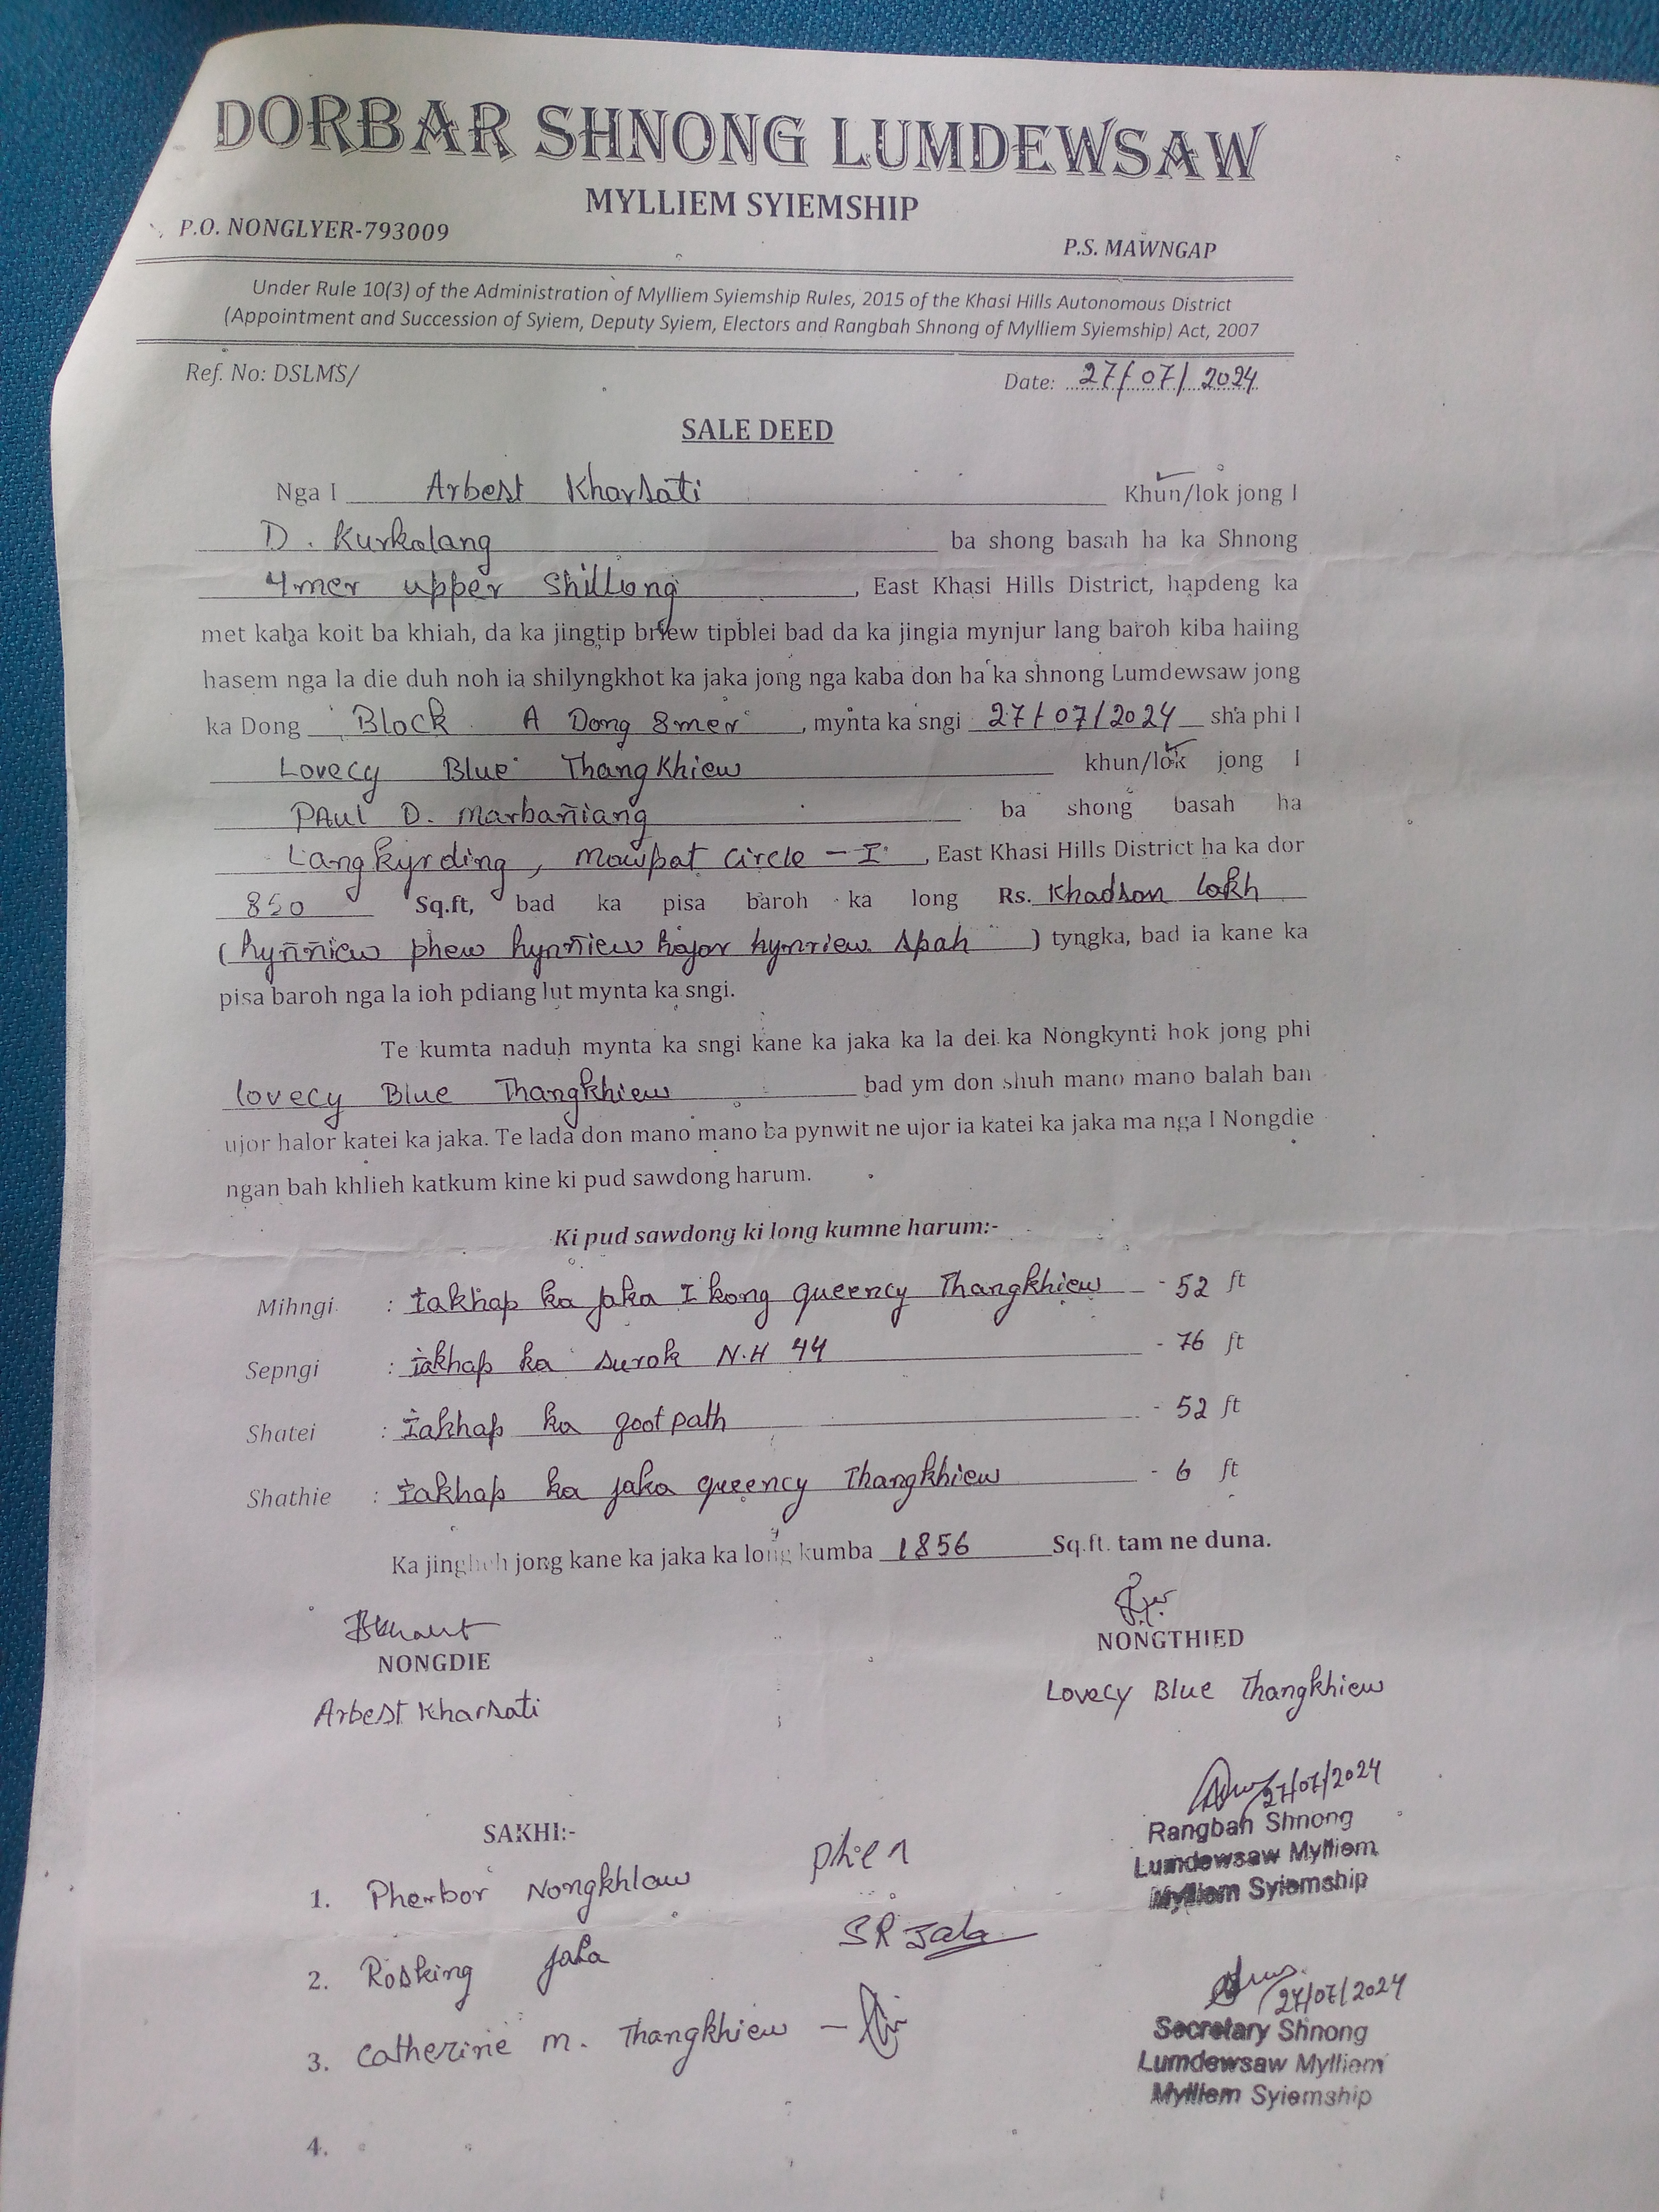 DORBAR SHNONG LUMDEWSAW
MYLLIEM SYIEMSHIP
P.O. NONGLYER-793009
P.S. MAWNGAP
Under Rule 10(3) of the Administration of Mylliem Syiemship Rules, 2015 of the Khasi Hills Autonomous District
(Appointment and Succession of Syiem, Deputy Syiem, Electors and Rangbah Shnong of Mylliem Syiemship) Act, 2007
Ref. No: DSLMS/
Date: 27/07/2024
SALE DEED
Nga I Arbest Kharsati Khun/lok jong I
D. Kurkalang ba shong basah ha ka Shnong
4mer upper Shillong, East Khasi Hills District, hapdeng ka
met kaba koit ba khiah, da ka jingtip briew tipblei bad da ka jingia mynjur lang baroh kiba haiing
hasem nga la die duh noh ia shilyngkhot ka jaka jong nga kaba don ha ka shnong Lumdewsaw jong
ka Dong Block A Dong 8mer, mynta ka sngi 27/07/2024 sha phi I
Lovecy Blue Thangkhiew khun/lok jong I
PAUL D. Marbañiang ba shong basah ha
Langkyrding, Mawpat Circle - I, East Khasi Hills District ha ka dor
850 Sq.ft, bad ka pisa baroh ka long Rs. Khadsan lakh
(hynñiew phew hynñiew hajar hynriew spah) tyngka, bad ia kane ka
pisa baroh nga la ioh pdiang lut mynta ka sngi.
Te kumta naduh mynta ka sngi kane ka jaka ka la dei ka Nongkynti hok jong phi
lovecy Blue Thangkhiew bad ym don shuh mano mano balah ban
ujor halor katei ka jaka. Te lada don mano mano ba pynwit ne ujor ia katei ka jaka ma nga I Nongdie
ngan bah khlieh katkum kine ki pud sawdong harum.
Ki pud sawdong ki long kumne harum:-
Mihngi : ïakhap ka jaka I kong queency Thangkhiew - 52 ft
Sepngi : ïakhap ka surok N.H 44 - 76 ft
Shatei : ïakhap ka footpath - 52 ft
Shathie : ïakhap ka jaka queency Thangkhiew - 6 ft
Ka jingheh jong kane ka jaka ka long kumba 1856 Sq.ft. tam ne duna.
NONGDIE
NONGTHIED
Arbest Kharsati
Lovecy Blue Thangkhiew
27/07/2024
Rangbah Shnong
Lumdewsaw Mylliem
Mylliem Syiemship
SAKHI:-
1. Pherbor Nongkhlaw
2. Rosking Jala SR Jala
3. Catherine M. Thangkhiew -
27/07/2024
Secretary Shnong
Lumdewsaw Mylliem
Mylliem Syiemship
4.